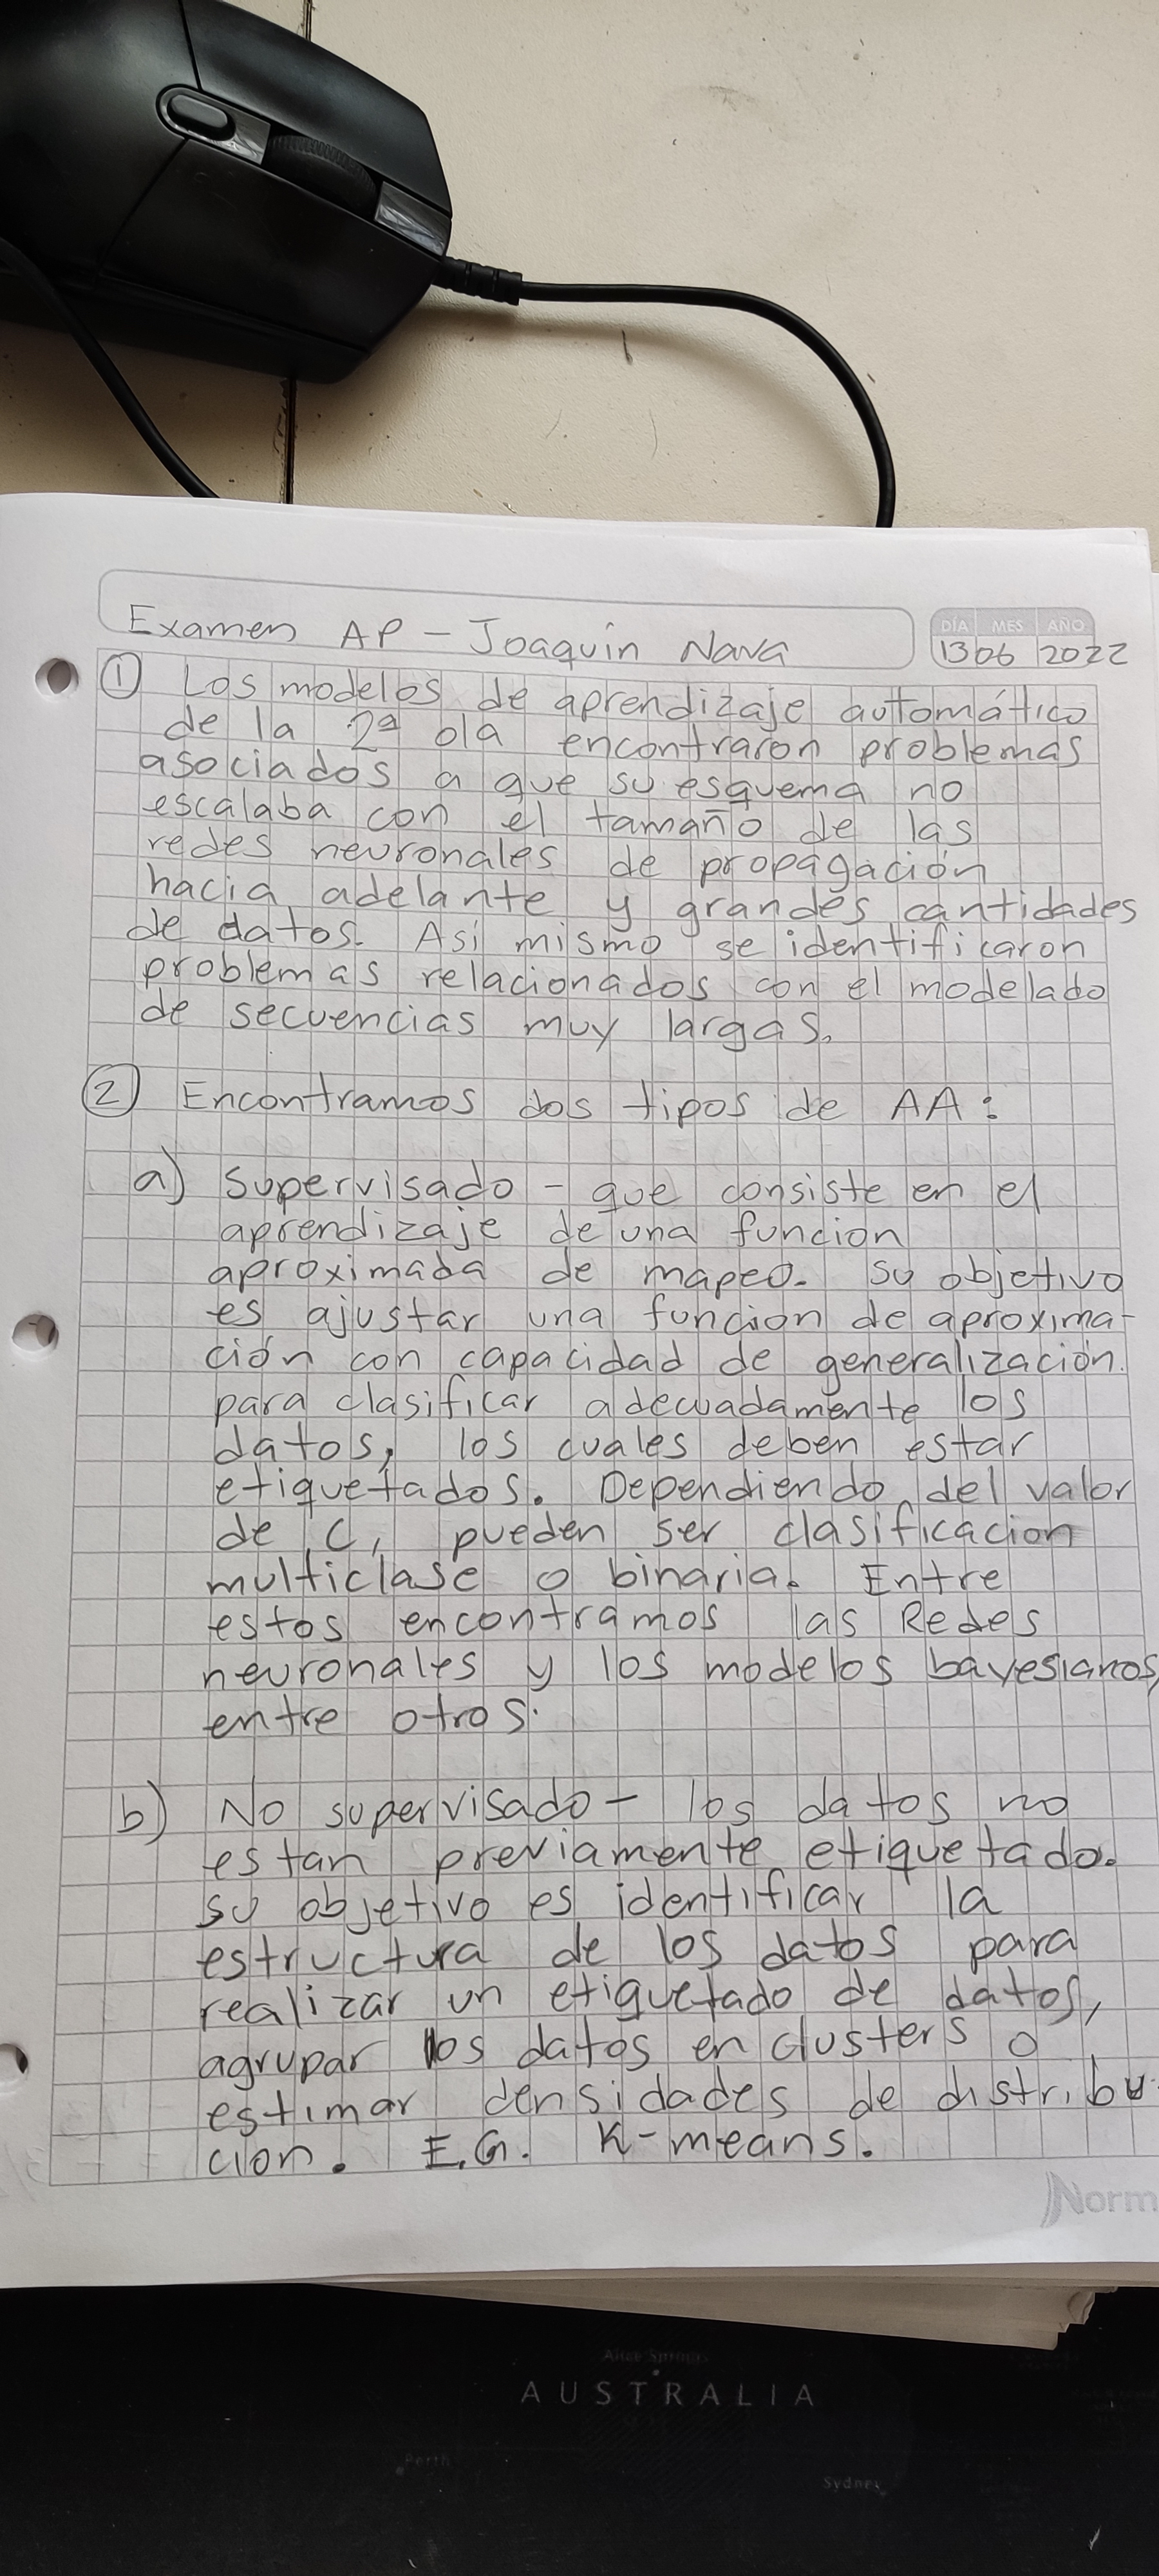 Examen AP - Joaquin Nava
DÍA MES AÑO
13 06 2022
① Los modelos de aprendizaje automático
de la 2ª ola encontraron problemas
asociados a que su esquema no
escalaba con el tamaño de las
redes neuronales de propagación
hacia adelante y grandes cantidades
de datos. Asi mismo se identificaron
problemas relacionados con el modelado
de secuencias muy largas.
② Encontramos dos tipos de AA:
a) Supervisado - que consiste en el
aprendizaje de una funcion
aproximada de mapeo. Su objetivo
es ajustar una función de aproxima-
ción con capacidad de generalización
para clasificar adecuadamente los
datos, los cuales deben estar
etiquetados. Dependiendo del valor
de C, pueden ser clasificacion
multiclase o binaria. Entre
estos encontramos las Redes
neuronales y los modelos bayesianos,
entre otros.
b) No supervisado - los datos no
estan previamente etiquetado.
su objetivo es identificar la
estructura de los datos para
realizar un etiquetado de datos,
agrupar los datos en clusters o
estimar densidades de distribu-
cion. E.G. K-means.
Norm
Alice Springs
AUSTRALIA
Perth
Sydney